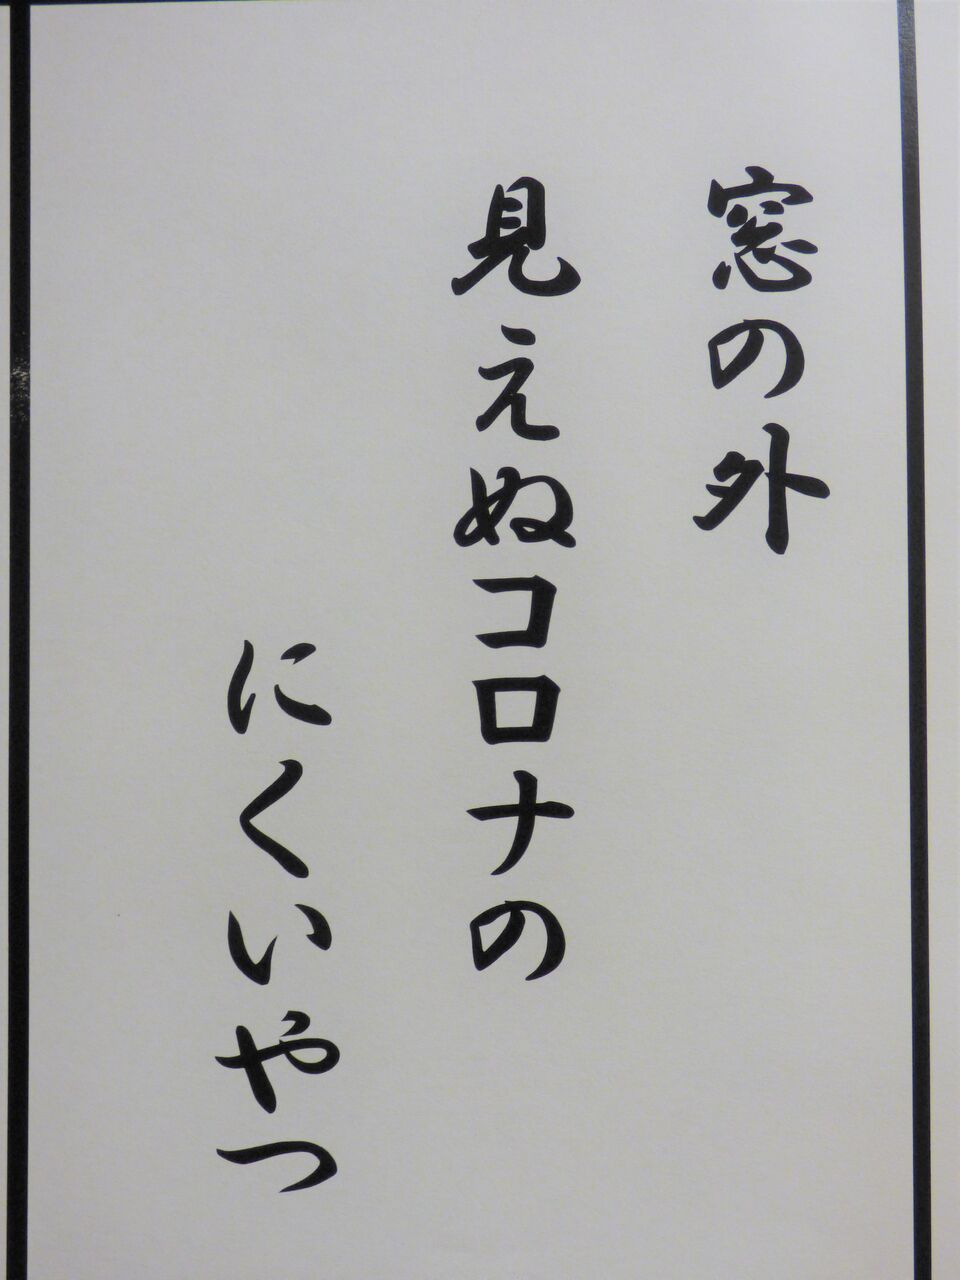 窓の外
見えぬコロナの
にくいやつ